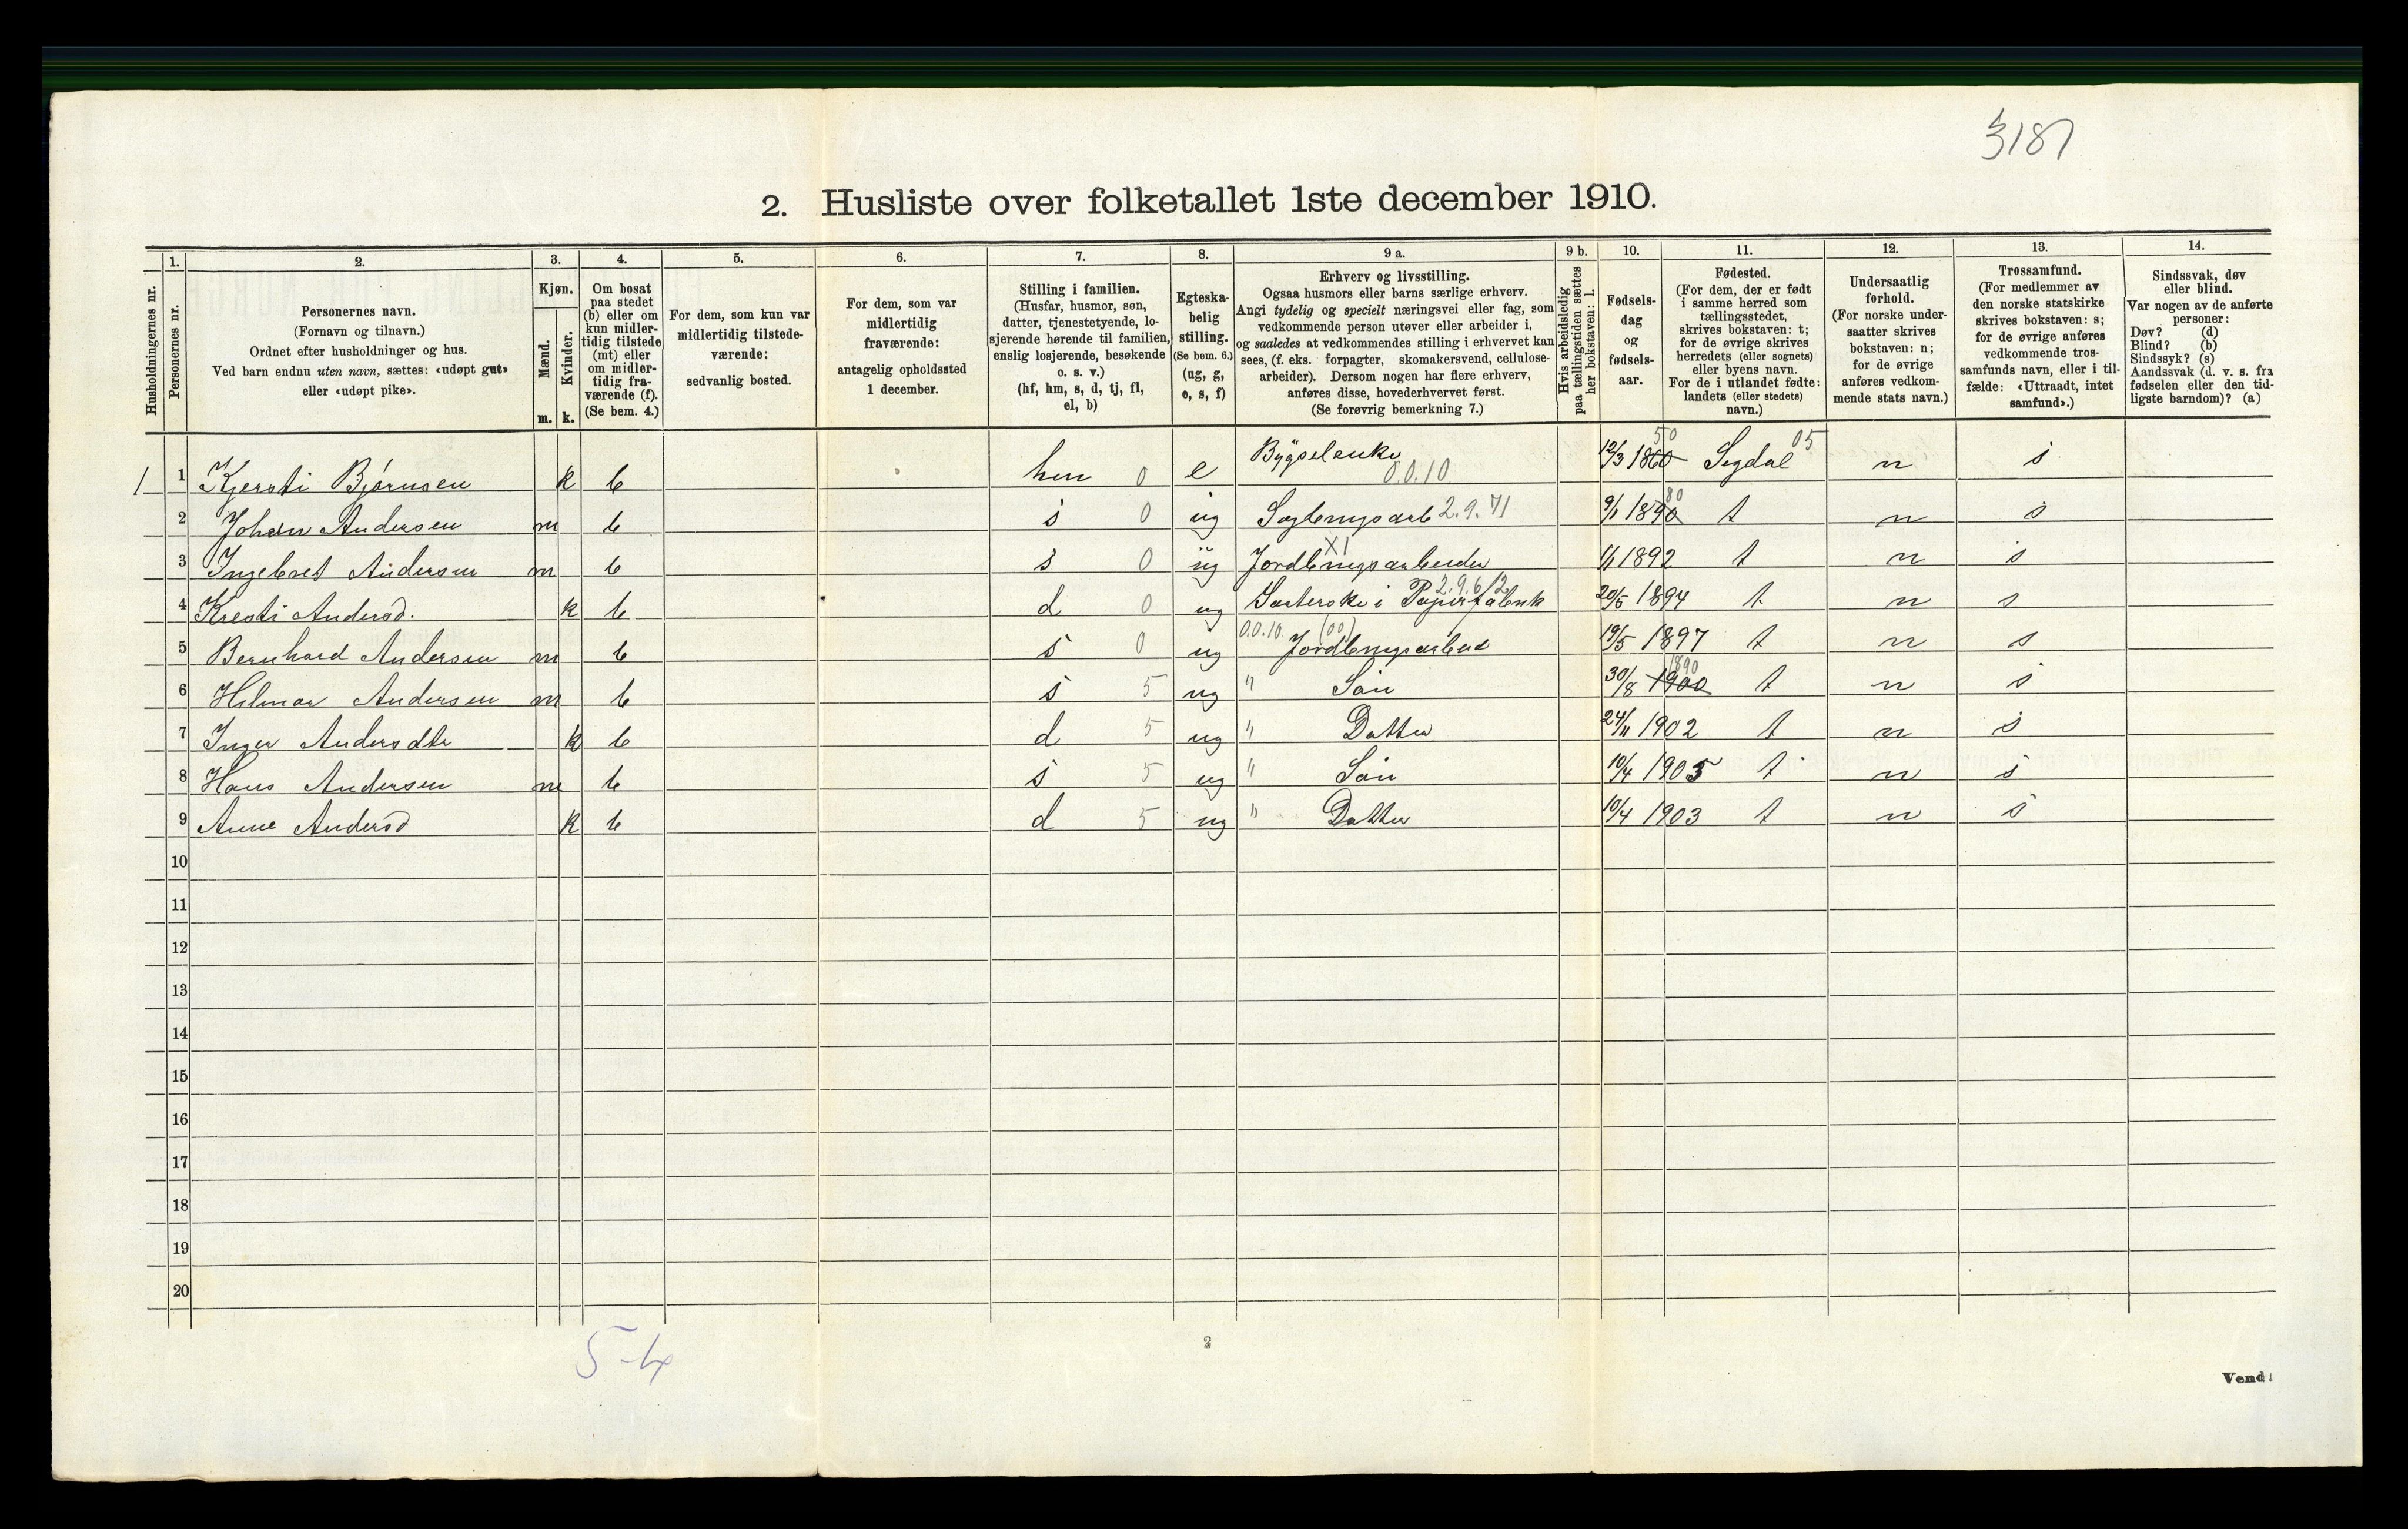 3187
2. Husliste over folketallet 1ste december 1910.
Husholdningernes nr.
1.
Personernes nr.
2.
Personernes navn.
(Fornavn og tilnavn.)
Ordnet efter husholdninger og hus.
Ved barn endnu uten navn, sættes: «udøpt gut»
eller «udøpt pike».
3.
Kjøn.
Mænd.
Kvinder.
m. k.
4.
Om bosat
paa stedet
(b) eller om
kun midler-
tidig tilstede
(mt) eller
om midler-
tidig fra-
værende (f).
(Se bem. 4.)
5.
For dem, som kun var
midlertidig tilstede-
værende:
sedvanlig bosted.
6.
For dem, som var
midlertidig
fraværende:
antagelig opholdssted
1 december.
7.
Stilling i familien.
(Husfar, husmor, søn,
datter, tjenestetyende, lo-
sjerende hørende til familien,
enslig losjerende, besøkende
o. s. v.)
(hf, hm, s, d, tj, fl,
el, b)
8.
Egteska-
belig
stilling.
(Se bem. 6.)
(ug, g,
e, s, f)
9 a.
Erhverv og livsstilling.
Ogsaa husmors eller barns særlige erhverv.
Angi tydelig og specielt næringsvei eller fag, som
vedkommende person utøver eller arbeider i,
og saaledes at vedkommendes stilling i erhvervet kan
sees, (f. eks. forpagter, skomakersvend, cellulose-
arbeider). Dersom nogen har flere erhverv,
anføres disse, hovederhvervet først.
(Se forøvrig bemerkning 7.)
9 b.
Hvis arbeidsledig
paa tællingstiden sættes
her bokstaven: l.
10.
Fødsels-
dag
og
fødsels-
aar.
11.
Fødested.
(For dem, der er født
i samme herred som
tællingsstedet,
skrives bokstaven: t;
for de øvrige skrives
herredets (eller sognets)
eller byens navn.
For de i utlandet fødte:
landets (eller stedets)
navn.)
12.
Undersaatlig
forhold.
(For norske under-
saatter skrives
bokstaven: n;
for de øvrige
anføres vedkom-
mende stats navn.)
13.
Trossamfund.
(For medlemmer av
den norske statskirke
skrives bokstaven: s;
for de øvrige anføres
vedkommende tros-
samfunds navn, eller i til-
fælde: «Uttraadt, intet
samfund».)
14.
Sindssvak, døv
eller blind.
Var nogen av de anførte
personer:
Døv? (d)
Blind? (b)
Sindssyk? (s)
Aandssvak (d. v. s. fra
fødselen eller den tid-
ligste barndom)? (a)
1 1 Kjersti Bjørnsen k b hm 0 e Bygselenke 0.0.10 12/3 1860 50 Sigdal 05 n s
2 Johan Andersen m b s 0 ug 2.9.71 9/1 1890 80 t n s
3 Ingebret Andersen m b s 0 ug Jordbrugsarbeider X1 1/1 1892 t n s
4 Kresti Andersd. k b d 0 ug Sorterske i Papirfabrik 2.9.6/2 20/5 1894 t n s
5 Bernhard Andersen m b s 0 ug 0.0.10. (00) Jordbrugsarbeid 19/5 1897 t n s
6 Hilmar Andersen m b s 5 ug " Søn 30/8 1900 1890 t n s
7 Inger Andersdtr k b d 5 ug " Datter 24/11 1902 t n s
8 Hans Andersen m b s 5 ug " Søn 10/4 1905 t n s
9 Anne Andersd k b d 5 ug " Datter 10/4 1903 t n s
10
11
12
13
14
15
16
17
18
19
20
5-4
2
Vend!